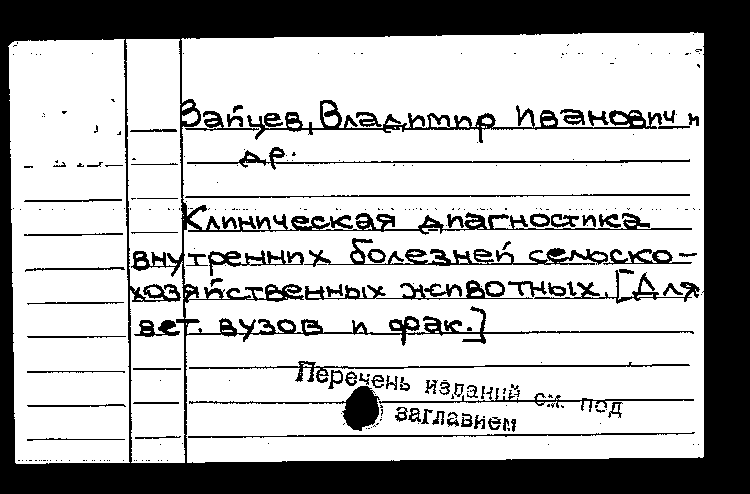 Зайцев, Владимир Иванович и
др.
Клиническая диагностика
внутренних болезней сельско-
хозяйственных животных. [Для
вет. вузов и фак.]
Перечень изданий см. под
заглавием